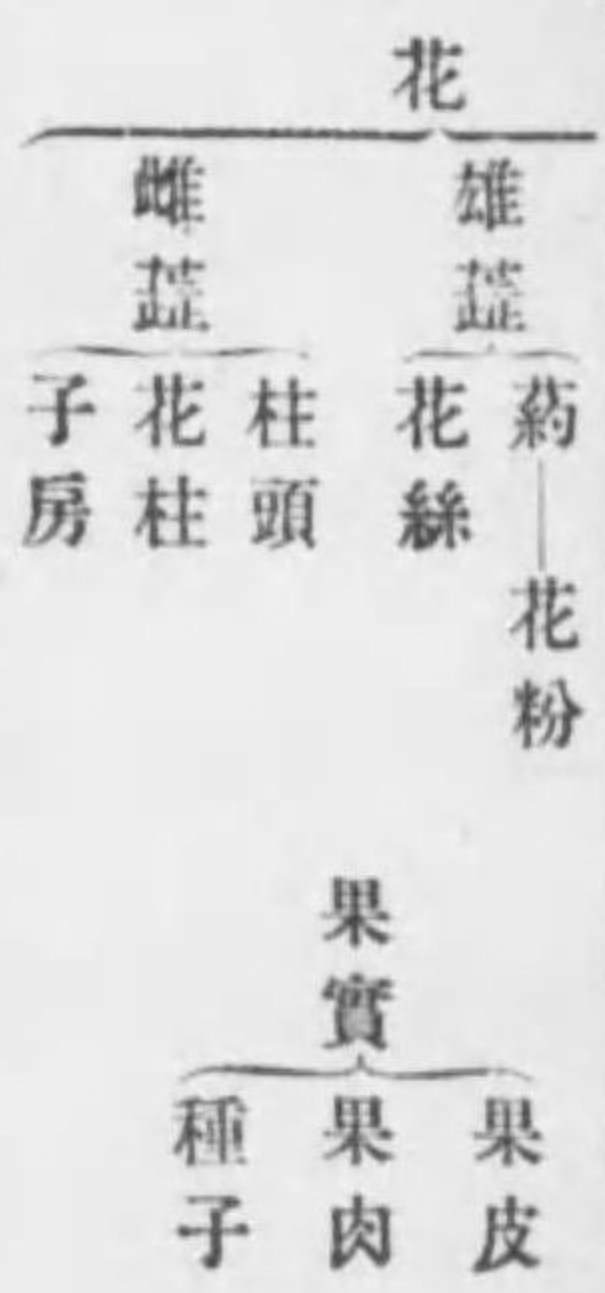 花
雄蕋
葯
花粉
花絲
雌蕋
柱頭
花柱
子房
果實
果皮
果肉
種子